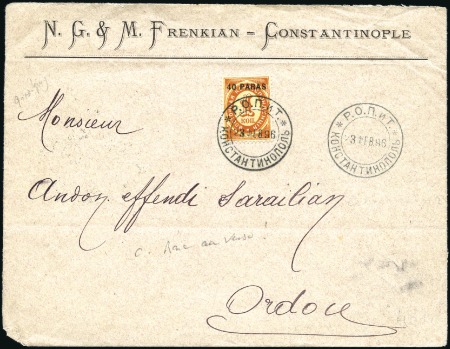 N. G. & M. FRENKIAN – CONSTANTINOPLE
40 PARAS
КОП.
* Р.О.П.иТ. *
КОНСТАНТИНОПОЛЬ
* Р.О.П.иТ. *
КОНСТАНТИНОПОЛЬ
Monsieur
Andon effendi Saraïlian
Ordou